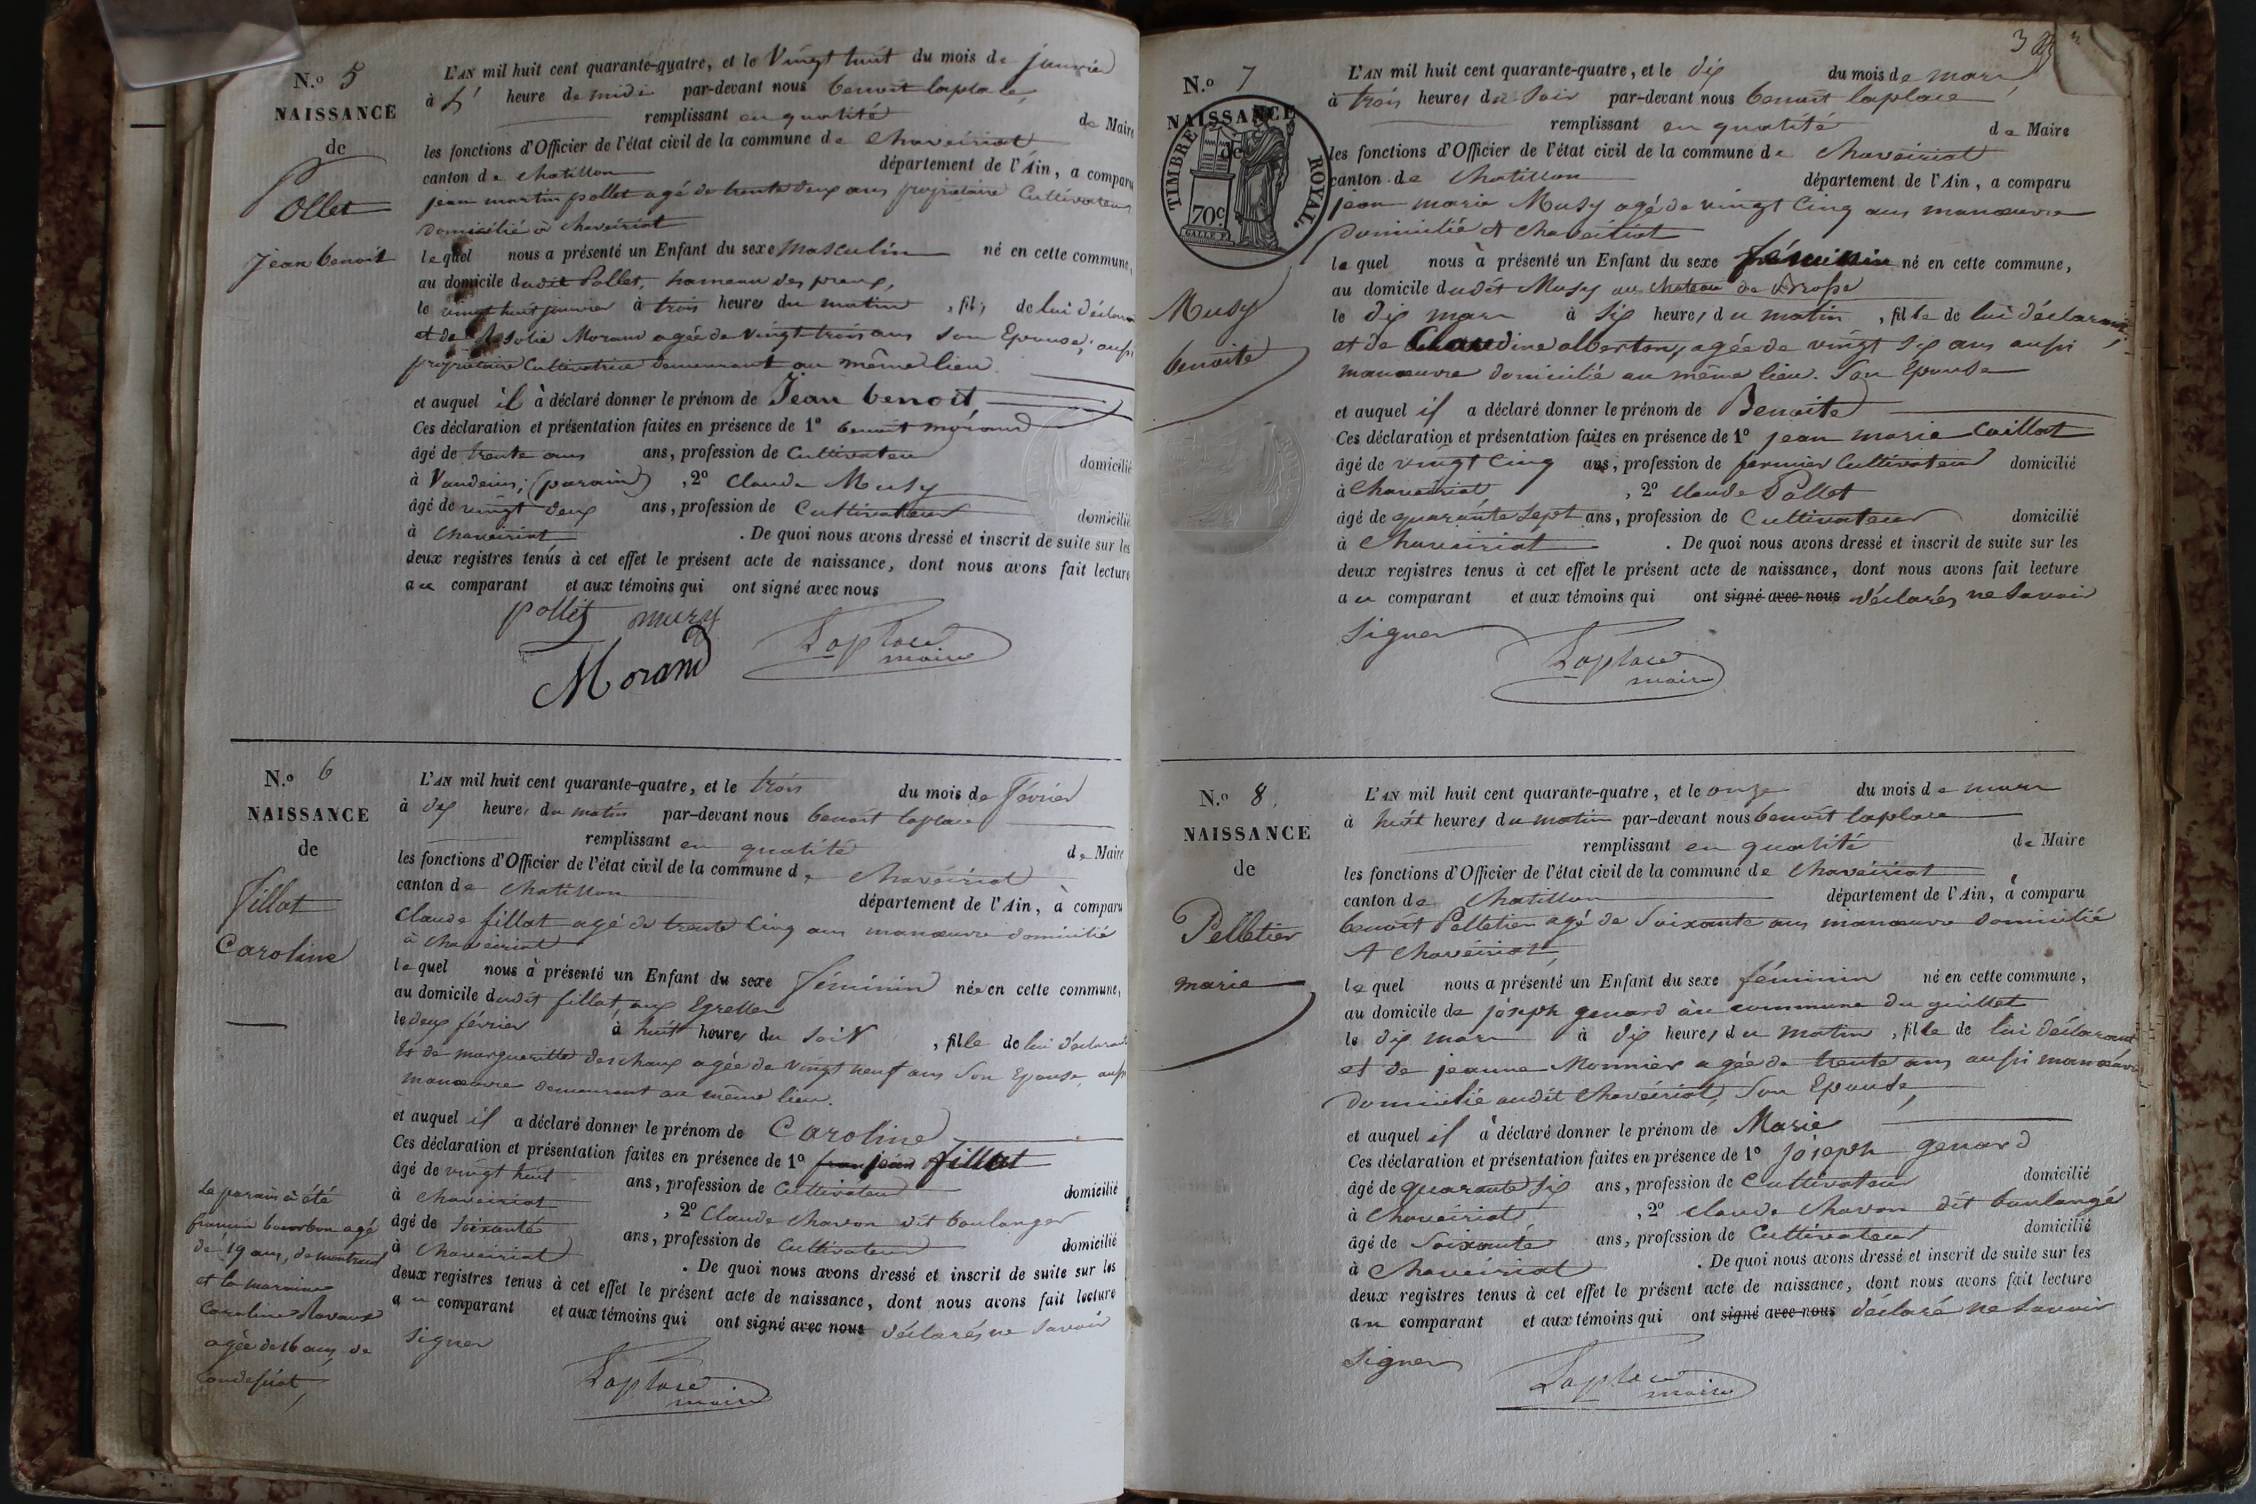 N.o 5
NAISSANCE
de
Pollet
Jean benoit
L'AN mil huit cent quarante-quatre, et le Vingt huit du mois de janvier
à heure de midi par-devant nous benoit laplace,
remplissant en qualité de Maire
les fonctions d'Officier de l'état civil de la commune de chaveiriat
canton de chatillon département de l'Ain, a comparu
jean martin pollet agé de trente deux ans propriétaire Cultivateur
domicilié à chaveiriat
lequel nous a présenté un Enfant du sexe masculin né en cette commune,
au domicile dudit Pollet, hameau des preaux,
le vingt huit janvier à trois heures du matin, fils de lui déclarant
et de Rosalie Morand agée de vingt trois ans son Epouse, aussi
propriétaire Cultivatrice demeurant au même lieu.
et auquel il à déclaré donner le prénom de Jean benoit
Ces déclaration et présentation faites en présence de 1° benoit morand
âgé de trente ans ans, profession de Cultivateur domicilié
à Vandeins, (parain), 2° Claude Musy
âgé de vingt deux ans, profession de Cultivateur domicilié
à Chaveiriat. De quoi nous avons dressé et inscrit de suite sur les
deux registres tenus à cet effet le présent acte de naissance, dont nous avons fait lecture
au comparant et aux témoins qui ont signé avec nous
pollet musy
Laplace
maire
Morand
N.o 6
NAISSANCE
de
fillat
Caroline
L'AN mil huit cent quarante-quatre, et le trois du mois de février
à dix heures du matin par-devant nous benoit laplace
remplissant en qualité de Maire
les fonctions d'Officier de l'état civil de la commune de chaveiriat
canton de chatillon département de l'Ain, à comparu
Claude fillat agé de trente cinq ans manœuvre domicilié
à chaveiriat
lequel nous à présenté un Enfant du sexe féminin née en cette commune,
au domicile dudit fillat, aux Egrelles
le deux février à huit heures du soir, fille de lui déclarant
et de margueritte deschaux agée de vingt neuf ans son Epouse, aussi
manœuvre demeurant au même lieu.
et auquel il a déclaré donner le prénom de Caroline
Ces déclaration et présentation faites en présence de 1° jean fillat
âgé de vingt huit ans, profession de Cultivateur domicilié
à chaveiriat, 2° Claude chavon dit boulanger
âgé de soixante ans, profession de Cultivateur domicilié
à chaveiriat. De quoi nous avons dressé et inscrit de suite sur les
deux registres tenus à cet effet le présent acte de naissance, dont nous avons fait lecture
au comparant et aux témoins qui ont signé avec nous déclarés ne savoir
signer
Laplace
maire
Le parain à été
bourbon agé
de 19 ans, de montracol
et la maraine
Caroline
agée de 16 ans de
Condeissiat
N.o 7
NAISSANCE
de
TIMBRE ROYAL
70c.
Musy
benoite
L'AN mil huit cent quarante-quatre, et le dix du mois de mars
à trois heures du soir par-devant nous benoit laplace
remplissant en qualité de Maire
les fonctions d'Officier de l'état civil de la commune de chaveiriat
canton de chatillon département de l'Ain, a comparu
jean marie Musy agé de vingt cinq ans manœuvre
domicilié à chaveiriat
lequel nous à présenté un Enfant du sexe féminin né en cette commune,
au domicile dudit Musy au chateau de Brosse
le dix mars à six heures du matin, fille de lui déclarant
et de Claudine alberton, agée de vingt six ans aussi
manœuvre domicilié au même lieu. son Epouse
et auquel il a déclaré donner le prénom de Benoite
Ces déclaration et présentation faites en présence de 1° jean marie Caillat
âgé de vingt cinq ans, profession de fermier Cultivateur domicilié
à Chaveiriat, 2° Claude Pollet
âgé de quarante sept ans, profession de Cultivateur domicilié
à Chaveiriat. De quoi nous avons dressé et inscrit de suite sur les
deux registres tenus à cet effet le présent acte de naissance, dont nous avons fait lecture
au comparant et aux témoins qui ont signé avec nous déclarés ne savoir
signer
Laplace
maire
N.o 8
NAISSANCE
de
Pelletier
marie
L'AN mil huit cent quarante-quatre, et le onze du mois de mars
à huit heures du matin par-devant nous benoit laplace
remplissant en qualité de Maire
les fonctions d'Officier de l'état civil de la commune de chaveiriat
canton de chatillon département de l'Ain, à comparu
benoit Pelletier agé de soixante ans manœuvre domicilié
à chaveiriat
lequel nous a présenté un Enfant du sexe féminin né en cette commune,
au domicile de joseph genard commune du guillet
le dix mars à dix heures du matin, fille de lui déclarant
et de jeanne Monnier agée de trente ans aussi manœuvre
domicilié audit chaveiriat, son Epouse,
et auquel il à déclaré donner le prénom de Marie
Ces déclaration et présentation faites en présence de 1° joseph genard
âgé de quarante six ans, profession de Cultivateur domicilié
à Chaveiriat, 2° Claude chavon dit boulangé
âgé de soixante ans, profession de Cultivateur domicilié
à Chaveiriat. De quoi nous avons dressé et inscrit de suite sur les
deux registres tenus à cet effet le présent acte de naissance, dont nous avons fait lecture
au comparant et aux témoins qui ont signé avec nous déclaré ne savoir
signer
Laplace
maire